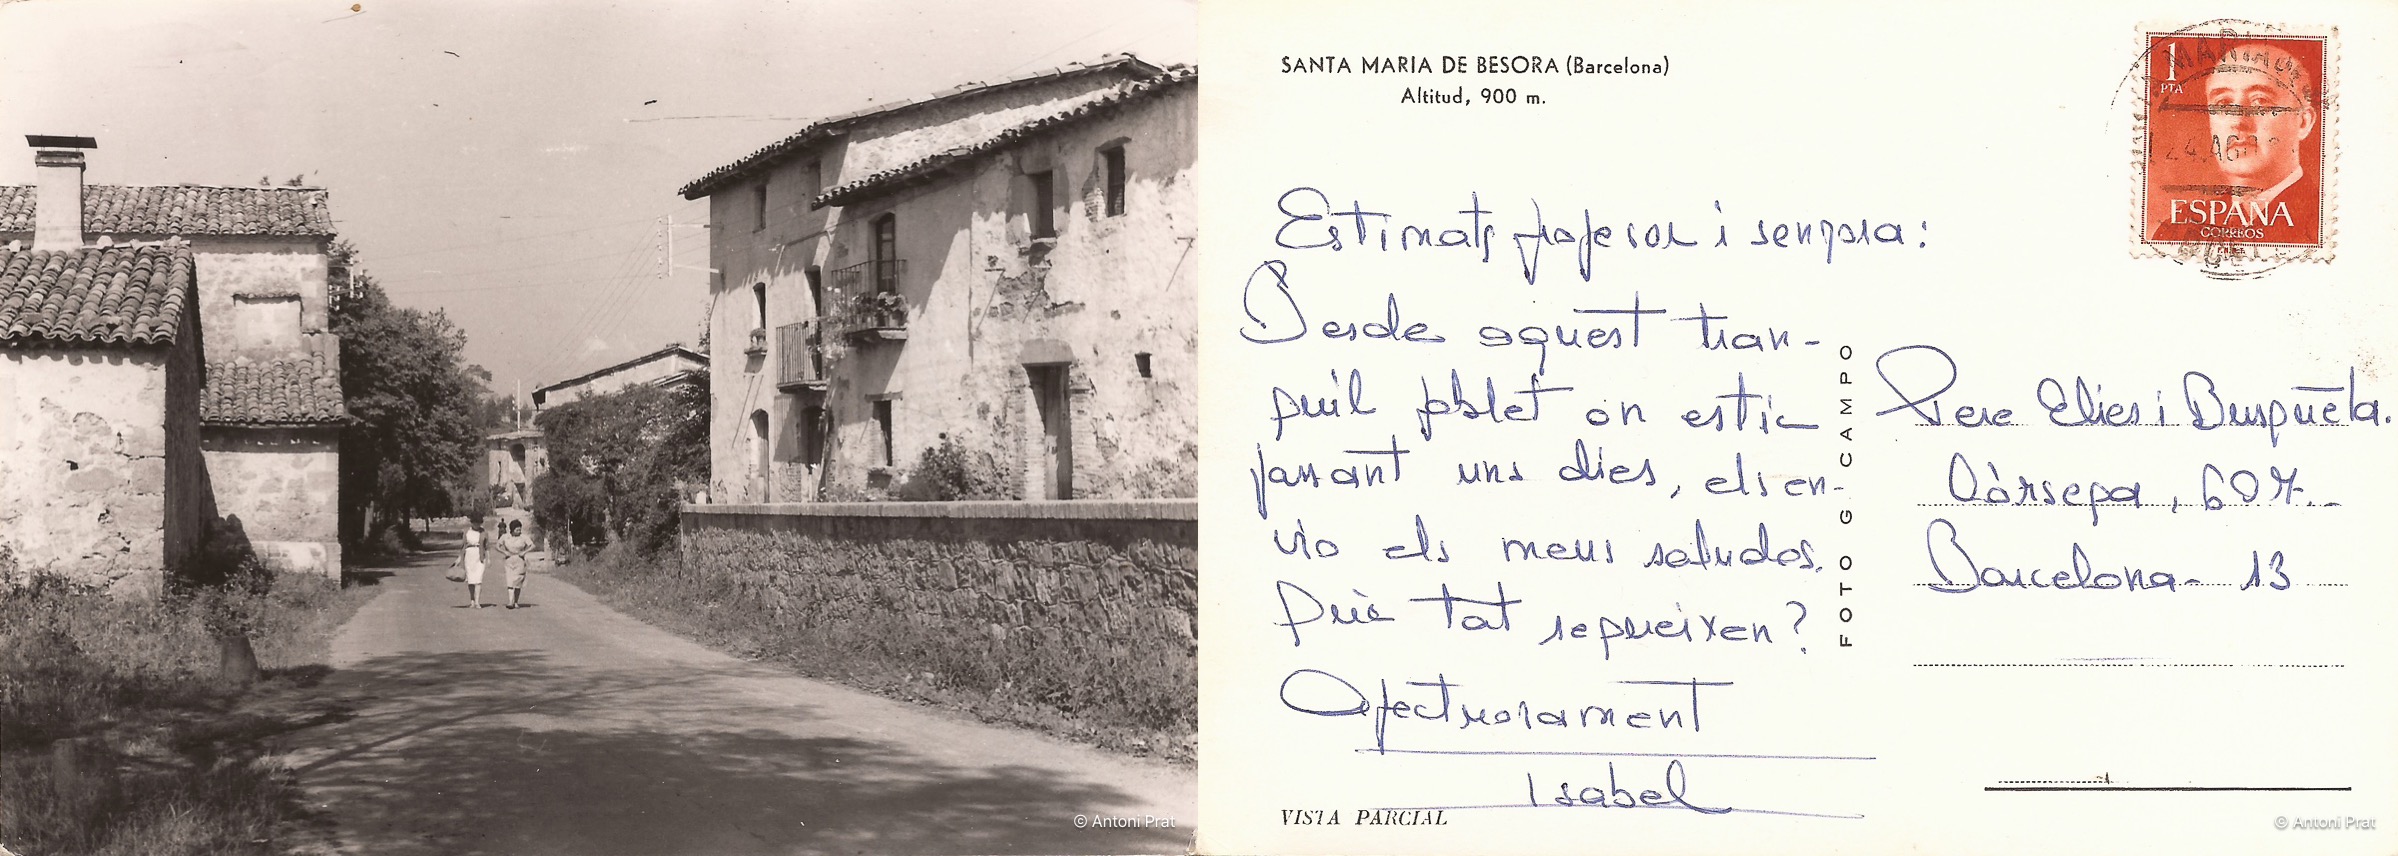 SANTA MARIA DE BESORA (Barcelona)
Altitud, 900 m.
1
PTA
MARIA DE
24. AGO
ESPAÑA
CORREOS
Estimats profesor i senyora:
Desde aquest tran-
quil poblet on estic
passant uns dies, els en-
vio els meus saludos.
Què tat segueixen?
Afectuosament
Isabel
VISTA PARCIAL
FOTO G CAMPO
Pere Elies i Busqueta.
Còrsega, 607.-
Barcelona- 13
© Antoni Prat
© Antoni Prat